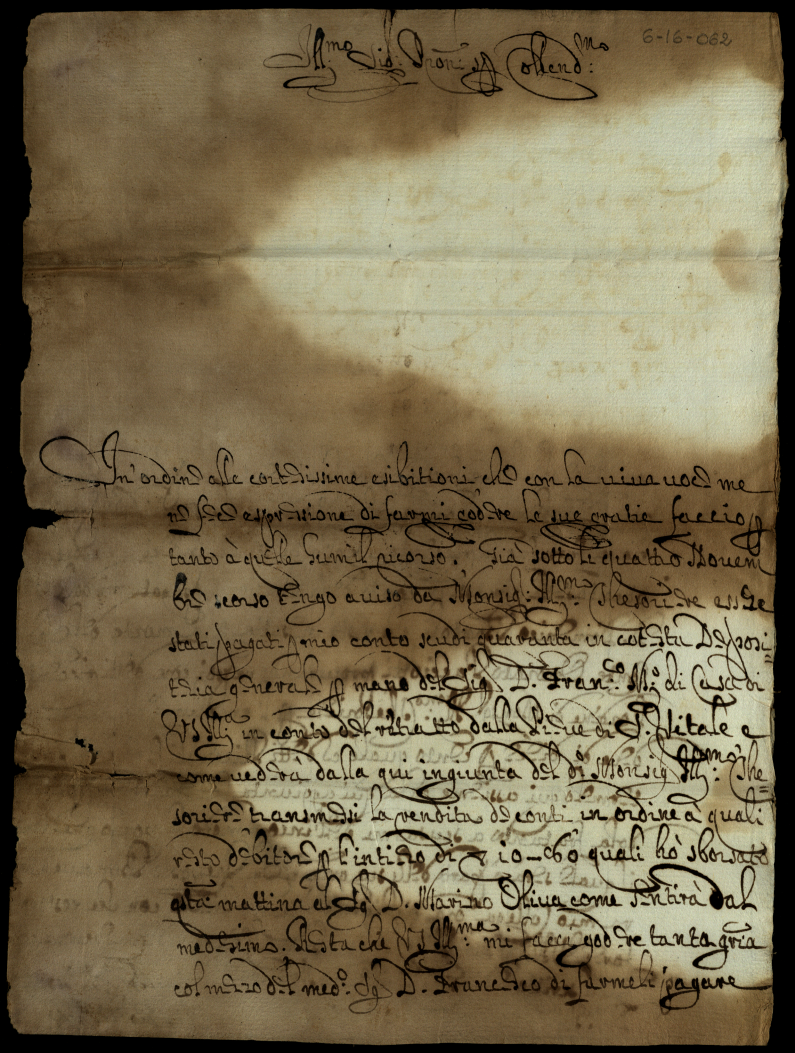 6-16-062
Ill.mo Sig: Pron: Collend.mo:
In' ordine alle cortesissime esibitioni che con la uiua uoce me
ne fece espressione di farmi godere le sue gratie faccio p
tanto à quelle humil ricorso. Già sotto li quattro Nouem
bre scorso tengo auiso da Monsig: Ill.mo Thesoriere essere
stati pagati p mio conto scudi quaranta in cotesta Deposi=
teria generale p mano del Sig.r D. Fran.co M.o di Casa di
VS Ill.ma in conto del ritratto dalla Pieue di S. Vitale e
come uederà dalla qui ingiunta del d.o Monsig.r Ill.mo The=
soriere transmessi la rendita de conti in ordine a quali
resto debitore p l'intiero di 10-60 quali hò sborsato
q.sta mattina al Sig.r D. Marino Oliua come sentirà dal
medesimo. Resta che VS Ill.ma mi faccia godere tanta gr̃ia
col mezzo del med.o Sig.r D. Francesco di farmeli pagare